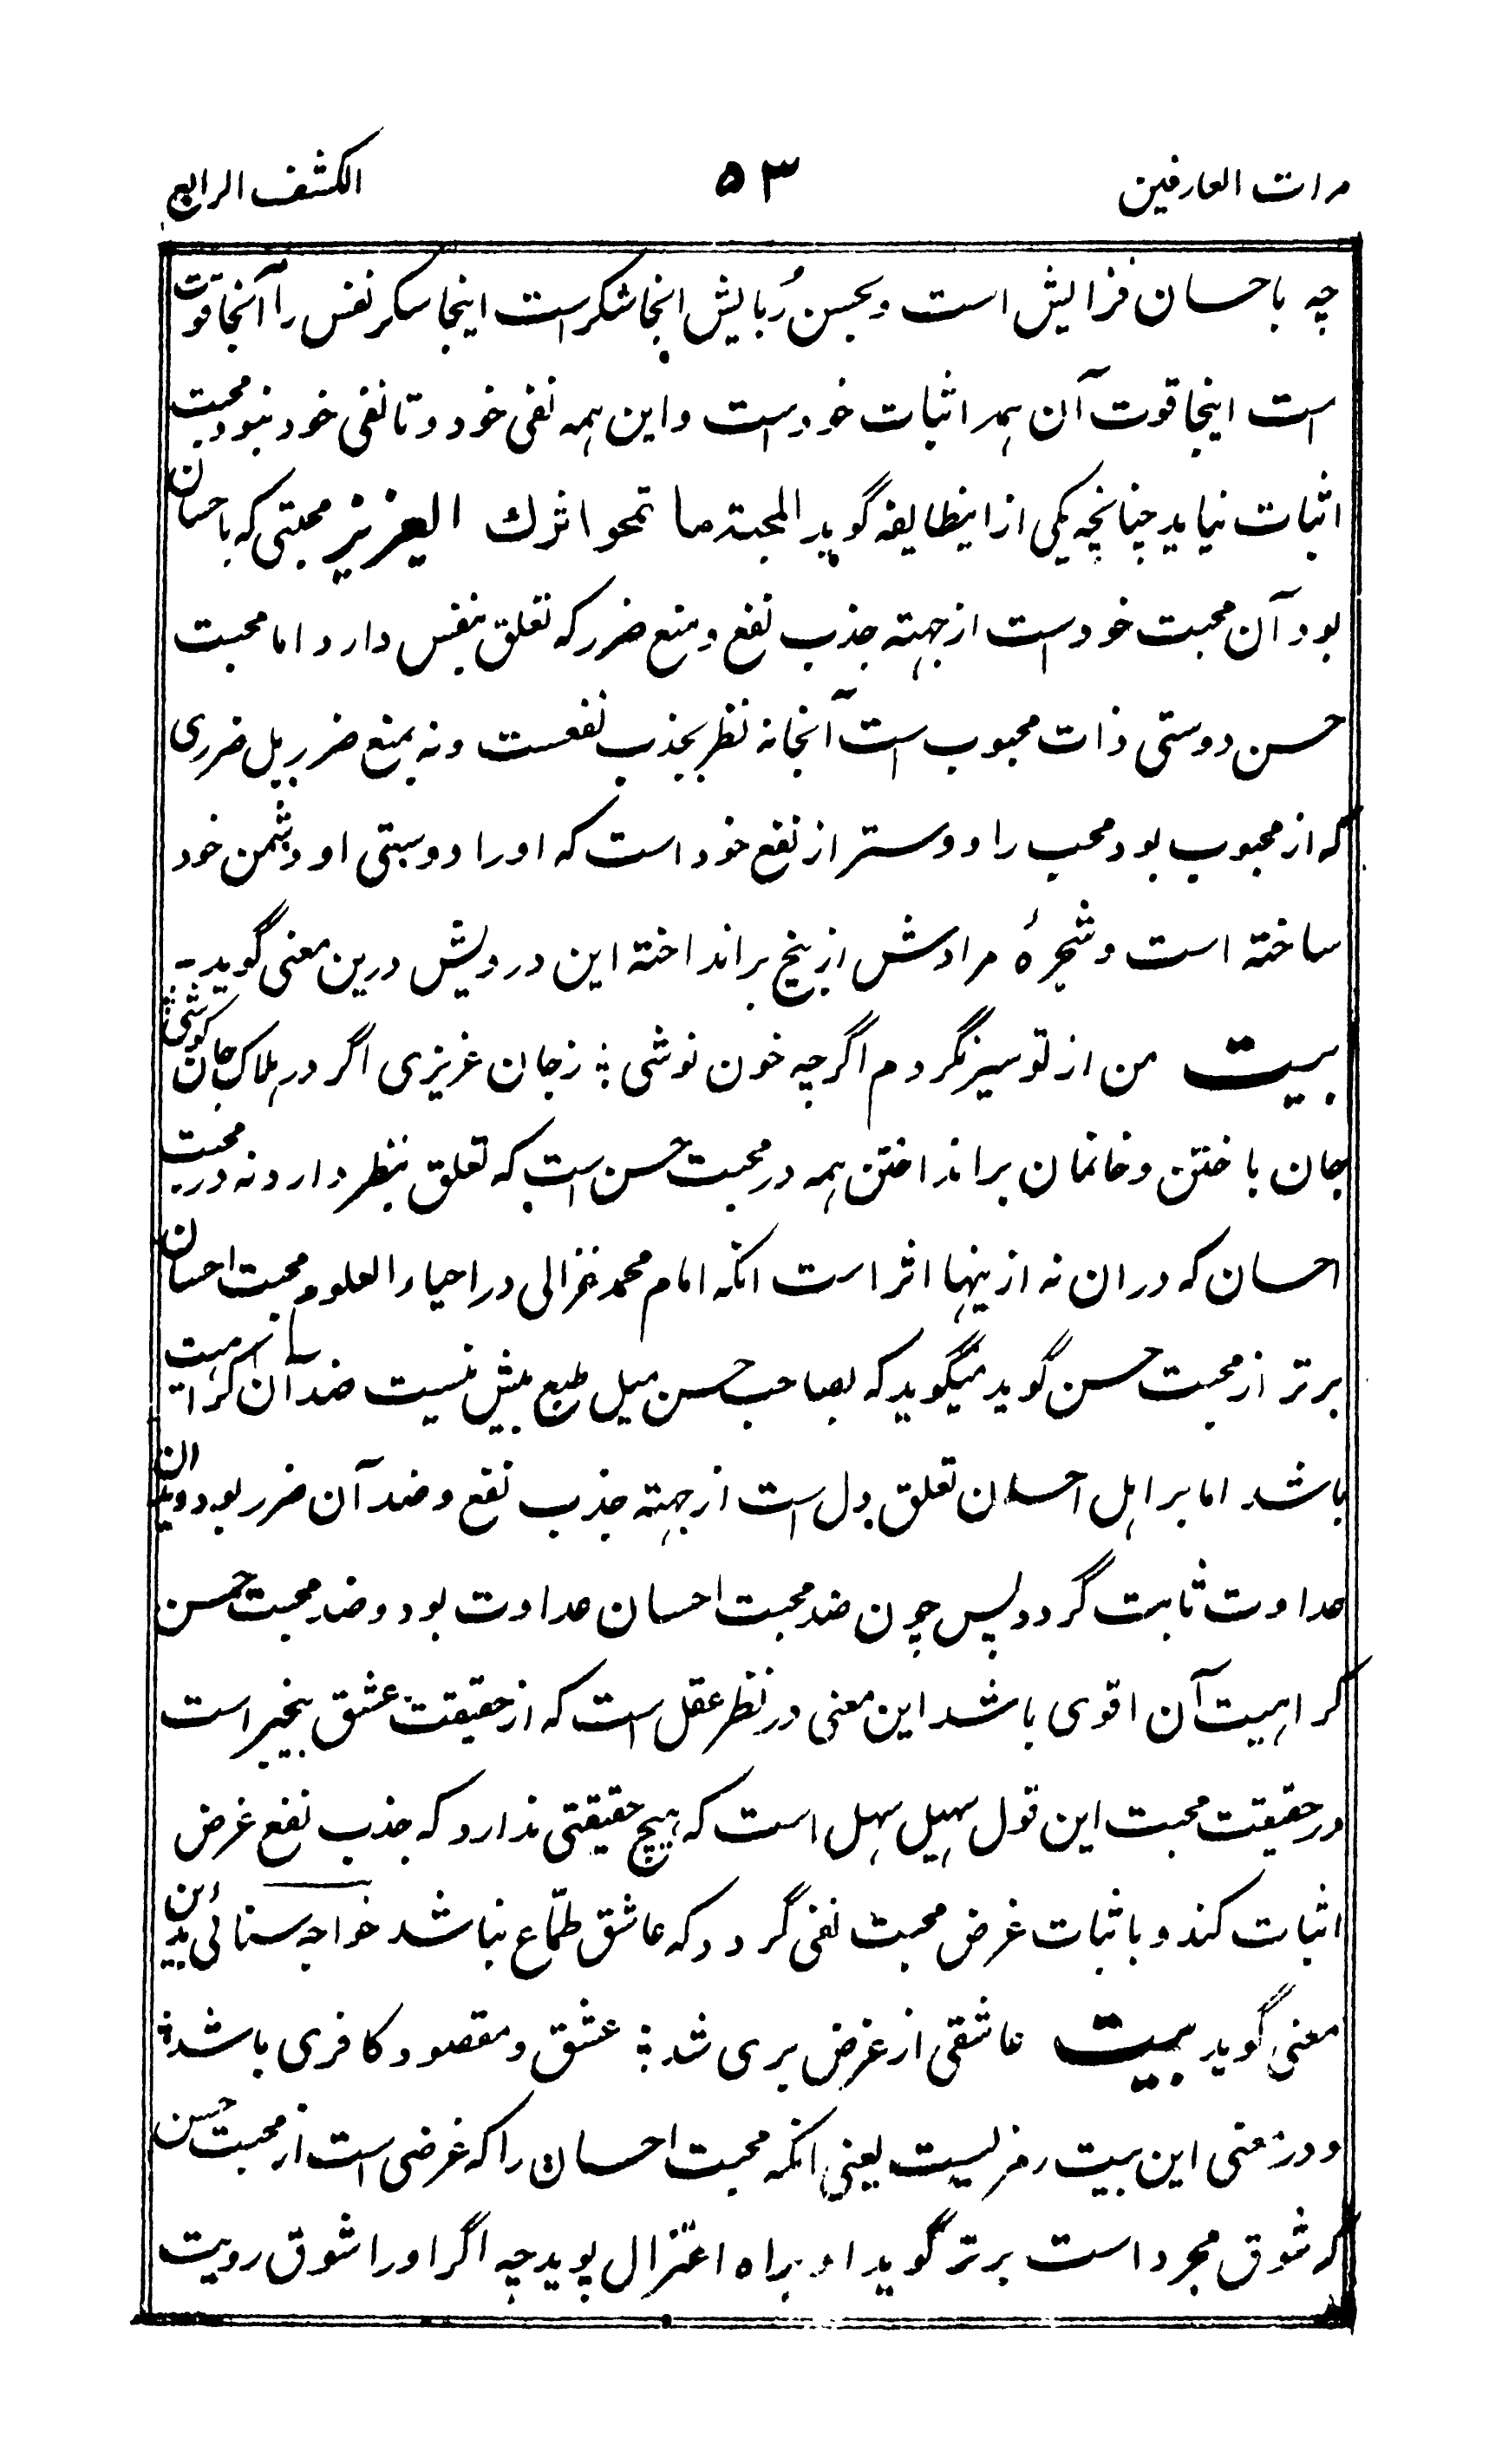 مرات العارفین ۵۳ الکشف الرابع
چه باحسان فزایش است و بحسن رُبایش انجا شکر است اینجا سکر نفس را آنجا قوت
است اینجا قوت آن همه اثبات خود است و این همه نفی خود و تا نفی خود نبود محبت
اثبات نیاید چنانچه یکی از اینطایفه گوید المحبة ما تمحو اثرك العزیز محبتی که باحسان
بود آن محبت خود است از جهته جذب نفع و منع ضرر که تعلق بنفس دارد اما محبت
حسن دوستی ذات محبوب است آنجا نه نظر بجذب نفعست و نه بمنع ضرر بل ضرری
که از محبوب بود محب را دوستر از نفع خود است که او را دوستی او دشمن خود
ساخته است و شجرهٔ مرادش از بیخ برانداخته این درویش درین معنی گوید
بیت من از تو سیر نگردم اگرچه خون نوشی ؛ ز جان عزیزی اگر در هلاک جان کوشی ؛
جان باختن و خانمان برانداختن همه در محبت حسن است که تعلق بنظر دارد نه در محبت
احسان که دران نه ازینها اثر است انکه امام محمد غزالی در احیاء العلوم محبت احسان
برتر از محبت حسن گوید میگوید که بصاحب حسن میل طبع بیش نیست ضد آن کراهیت
باشد اما بر اهل احسان تعلق بدل است از جهته جذب نفع و ضد آن ضرر بود و بدان
عداوت ثابت گردد پس چون ضد محبت احسان عداوت بود و ضد محبت حسن
کراهیت آن اقوی باشد این معنی در نظر عقل است که از حقیقت عشق بیخبر است
در حقیقت محبت این قول سهیل سهل است که هیچ حقیقتی ندارد که جذب نفع غرض
اثبات کند و باثبات غرض محبت نفی گردد که عاشق طمّاع نباشد خواجه سنائی بدین
معنی گوید بیت عاشقی از غرض بری شد ؛ عشق و مقصود کافری باشد ؛
و در معنی این بیت رمزیست یعنی انکه محبت احسان را که غرضی است از محبت حسن
که شوق مجرد است برتر گوید او براه اعتزال پوید چه اگر او را شوق رویت